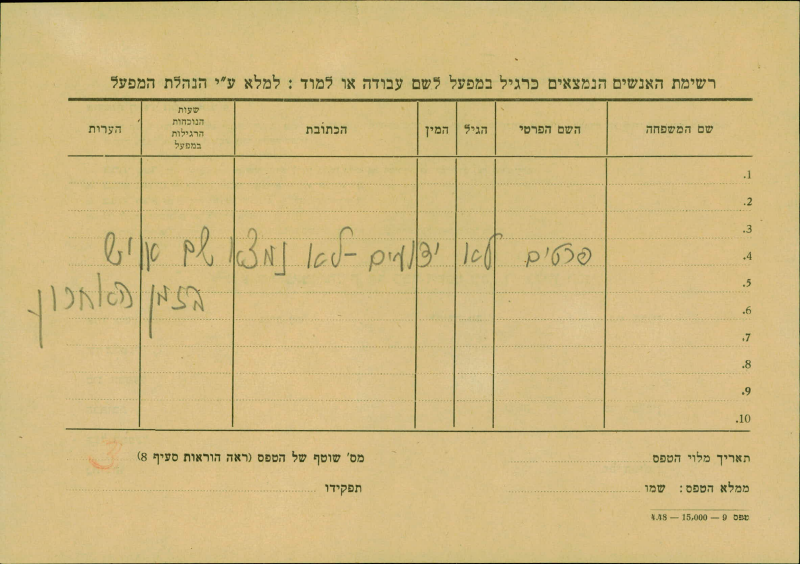 רשימת האנשים הנמצאים כרגיל במפעל לשם עבודה או למוד : למלא ע״י הנהלת המפעל
שם המשפחה
השם הפרטי
הגיל
המין
הכתובת
שעות
הנוכחות
הרגילות
במפעל
הערות
1.
2.
3.
4. פרטים לא ידועים - לא נמצא שם איש
5.
בזמן האחרון
6.
7.
8.
9.
10.
תאריך מלוי הטפס
מס' שוטף של הטפס (ראה הוראות סעיף 8) 3
ממלא הטפס: שמו
תפקידו
טפס 9 — 15.000 — 4.48